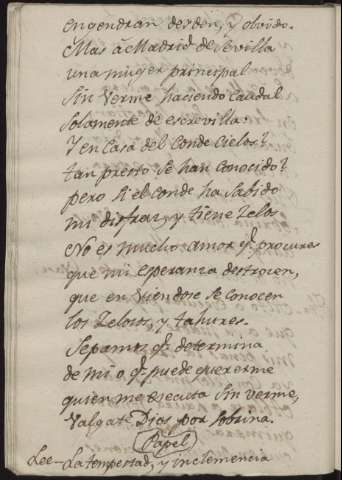 engendran desden, y olvido.
Mas â Madrid de Sevilla
una muger principal
Sin Verme haciendo caudal
Solamente de escrevilla?
Y en casa del Conde Cielos?
tan presto se han Conocido?
pero si el Conde ha sabido
mi disfraz, y tiene Zelos,
No es mucho amor q.e procures
que mi esperanza destrocen,
que en Viendose se Conocen
los Zelosos, y tahures.
Sepamos q.e determina
de mi o q.e puede quererme
quien me escucha Sin verme,
Valgate Dios por Sobrina.
Papel
Lee— La tempestad, y inclemencia